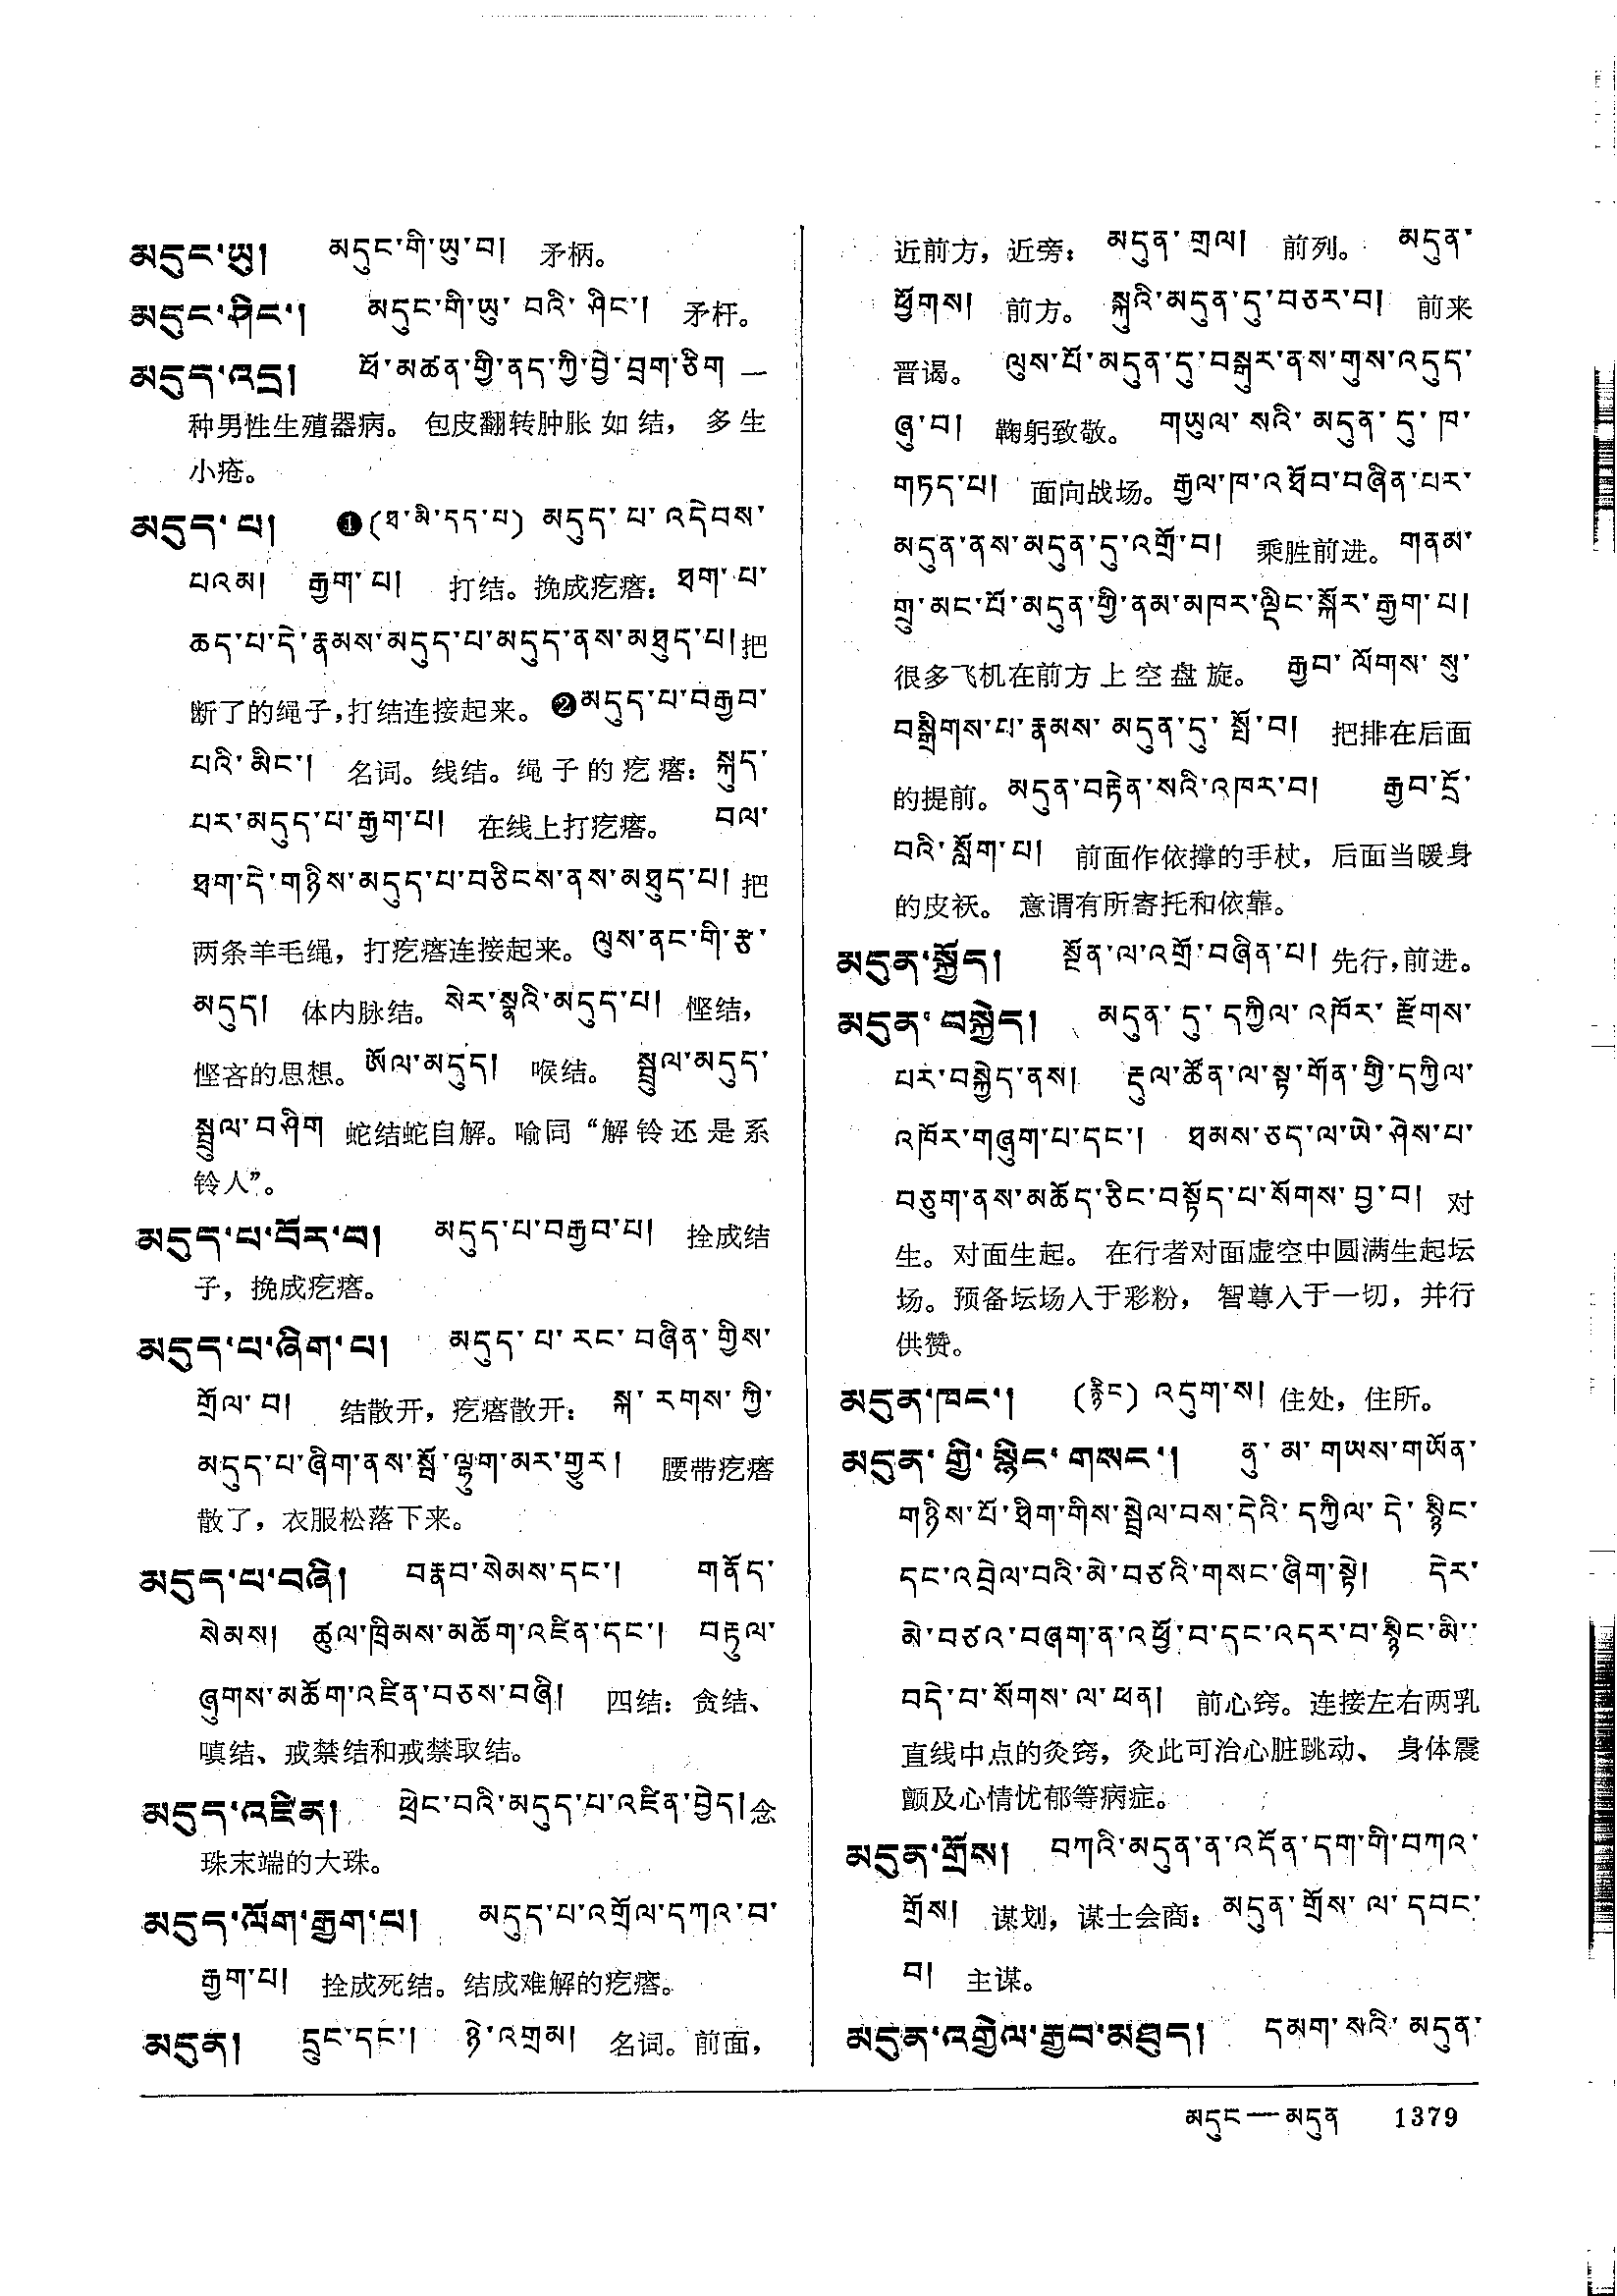 མདུང་ཡུ། མདུང་གི་ཡུ་བ། 矛柄。
མདུང་ཤིང་། མདུང་གི་ཡུ་བའི་ཤིང་། 矛杆。
མདུད་འདྲ། ཕོ་མཚན་གྱི་ནད་ཀྱི་བྱེ་བྲག་ཅིག 一
种男性生殖器病。包皮翻转肿胀如结，多生
小疮。
མདུད་པ། ❶(ཐ་མི་དད་པ) མདུད་པ་འདེབས་
པའམ། རྒྱག་པ། 打结。挽成疙瘩：ཐག་པ་
ཆད་པ་དེ་རྣམས་མདུད་པ་མདུད་ནས་མཐུད་པ། 把
断了的绳子，打结连接起来。❷མདུད་པ་བརྒྱབ་
པའི་མིང་། 名词。线结。绳子的疙瘩：སྐུད་
པར་མདུད་པ་རྒྱག་པ། 在线上打疙瘩。 བལ་
ཐག་དེ་གཉིས་མདུད་པ་བཅིངས་ནས་མཐུད་པ། 把
两条羊毛绳，打疙瘩连接起来。ལུས་ནང་གི་རྩ་
མདུད། 体内脉结。སེར་སྣའི་མདུད་པ། 悭结，
悭吝的思想。ཨོལ་མདུད། 喉结。 སྦྲུལ་མདུད་
སྦྲུལ་བཤིག 蛇结蛇自解。喻同“解铃还是系
铃人”。
མདུད་པ་བོར་བ། མདུད་པ་བརྒྱབ་པ། 拴成结
子，挽成疙瘩。
མདུད་པ་ཞིག་པ། མདུད་པ་རང་བཞིན་གྱིས་
གྲོལ་བ། 结散开，疙瘩散开：སྐ་རགས་ཀྱི་
མདུད་པ་ཞིག་ནས་སྦྲོ་ལྷུག་མར་གྱུར། 腰带疙瘩
散了，衣服松落下来。
མདུད་པ་བཞི། བརྣབ་སེམས་དང་། གནོད་
སེམས། ཚུལ་ཁྲིམས་མཆོག་འཛིན་དང་། བརྟུལ་
ཞུགས་མཆོག་འཛིན་བཅས་བཞི། 四结：贪结、
嗔结、戒禁结和戒禁取结。
མདུད་འཛིན། ཕྲེང་བའི་མདུད་པ་འཛིན་བྱེད། 念
珠末端的大珠。
མདུད་ལོག་རྒྱག་པ། མདུད་པ་འགྲོལ་དཀའ་བ་
རྒྱག་པ། 拴成死结。结成难解的疙瘩。
མདུན། དྲུང་དང་། ཉེ་འགྲམ། 名词。前面，
近前方，近旁：མདུན་གྲལ། 前列。 མདུན་
ཕྱོགས། 前方。 སྐུའི་མདུན་དུ་བཅར་བ། 前来
晋谒。 ལུས་པོ་མདུན་དུ་བསྒུར་ནས་གུས་འདུད་
ཞུ་བ། 鞠躬致敬。 གཡུལ་སའི་མདུན་དུ་ཁ་
གཏད་པ། 面向战场。རྒྱལ་ཁ་འཐོབ་བཞིན་པར་
མདུན་ནས་མདུན་དུ་འགྲོ་བ། 乘胜前进。གནམ་
གྲུ་མང་པོ་མདུན་གྱི་ནམ་མཁར་ལྡིང་སྐོར་རྒྱག་པ།
很多飞机在前方上空盘旋。 རྒྱབ་ལོགས་སུ་
བསྒྲིགས་པ་རྣམས་མདུན་དུ་སྤོ་བ། 把排在后面
的提前。མདུན་བརྟེན་སའི་འཁར་བ། རྒྱབ་དྲོ་
བའི་སློག་པ། 前面作依撑的手杖，后面当暖身
的皮袄。意谓有所寄托和依靠。
མདུན་སྐྱོད། སྔོན་ལ་འགྲོ་བཞིན་པ། 先行，前进。
མདུན་བསྐྱེད། མདུན་དུ་དཀྱིལ་འཁོར་རྫོགས་
པར་བསྐྱེད་ནས། རྡུལ་ཚོན་ལ་སྟ་གོན་གྱི་དཀྱིལ་
འཁོར་གཞུག་པ་དང་། ཐམས་ཅད་ལ་ཡེ་ཤེས་པ་
བཅུག་ནས་མཆོད་ཅིང་བསྟོད་པ་སོགས་བྱ་བ། 对
生。对面生起。在行者对面虚空中圆满生起坛
场。预备坛场入于彩粉，智尊入于一切，并行
供赞。
མདུན་ཁང་། (རྙིང) འདུག་ས། 住处，住所。
མདུན་གྱི་སྙིང་གསང་། ནུ་མ་གཡས་གཡོན་
གཉིས་པོ་ཐིག་གིས་སྦྲེལ་བས་དེའི་དཀྱིལ་དེ་སྙིང་
དང་འབྲེལ་བའི་མེ་བཙའི་གསང་ཞིག་སྟེ། དེར་
མེ་བཙའ་བཞག་ན་འཕྱོ་བ་དང་འདར་བ་སྙིང་མི་
བདེ་བ་སོགས་ལ་ཕན། 前心窍。连接左右两乳
直线中点的灸窍，灸此可治心脏跳动、身体震
颤及心情忧郁等病症。
མདུན་གྲོས། བཀའི་མདུན་ན་འདོན་དག་གི་བཀའ་
གྲོས། 谋划，谋士会商：མདུན་གྲོས་ལ་དབང་
བ། 主谋。
མདུན་འགྱེལ་རྒྱབ་མཐུད། དམག་སའི་མདུན་
མདུང—མདུན 1379